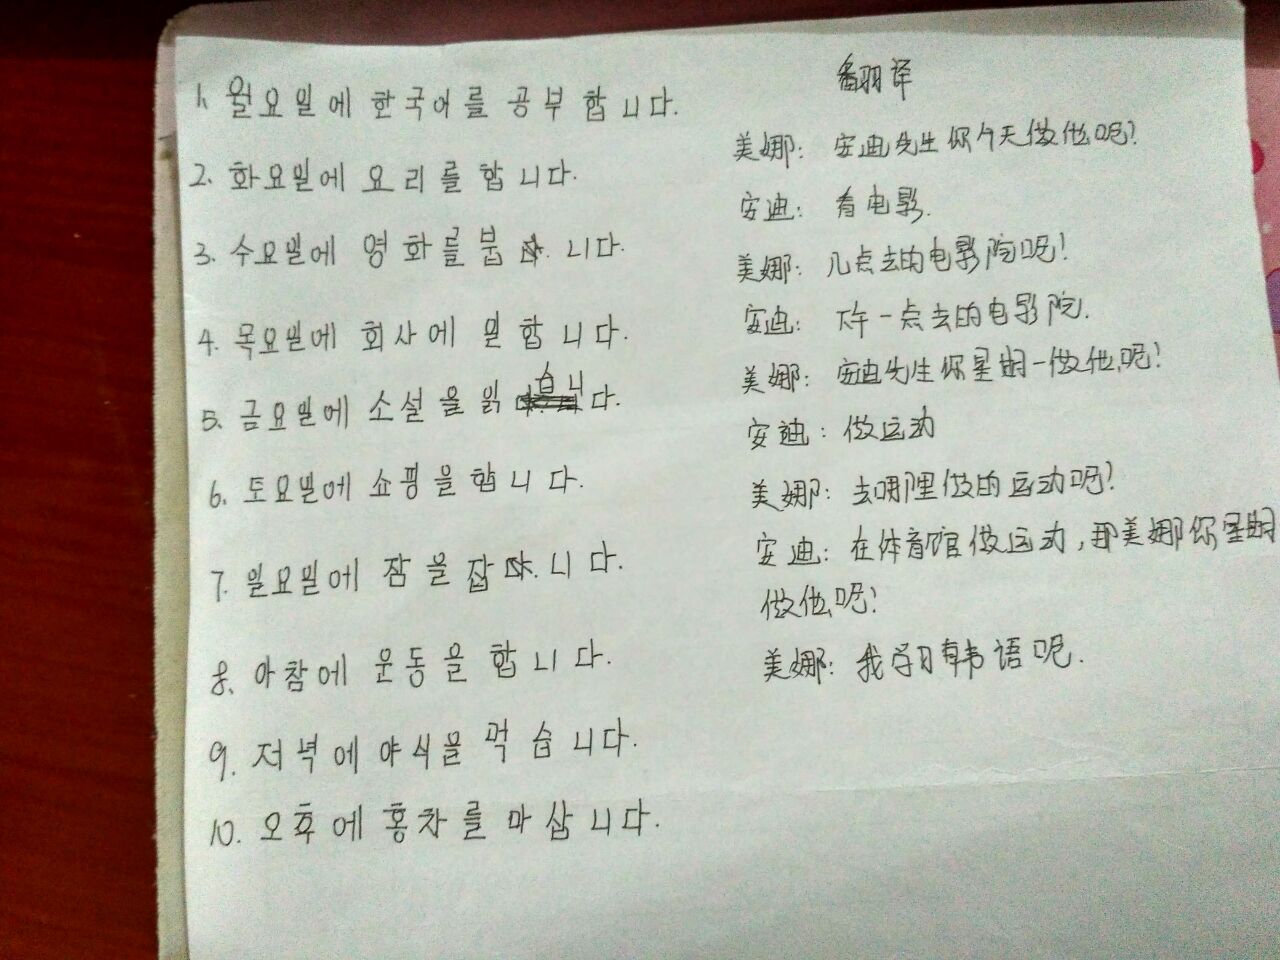 1. 월요일에 한국어를 공부합니다.
2. 화요일에 요리를 합니다.
3. 수요일에 영화를 봅니다.
4. 목요일에 회사에 일합니다.
5. 금요일에 소설을 읽습니다.
6. 토요일에 쇼핑을 합니다.
7. 일요일에 잠을 잡니다.
8. 아참에 운동을 합니다.
9. 저녁에 야식을 먹습니다.
10. 오후에 홍차를 마십니다.
翻译
美娜: 安迪先生你今天做什么呢?
安迪: 看电影.
美娜: 几点去的电影院呢!
安迪: 下午一点去的电影院.
美娜: 安迪先生你星期一做什么呢!
安迪: 做运动
美娜: 去哪里做的运动呢?
安迪: 在体育馆做运动,那美娜你星期
做什么呢!
美娜: 我学习韩语呢.